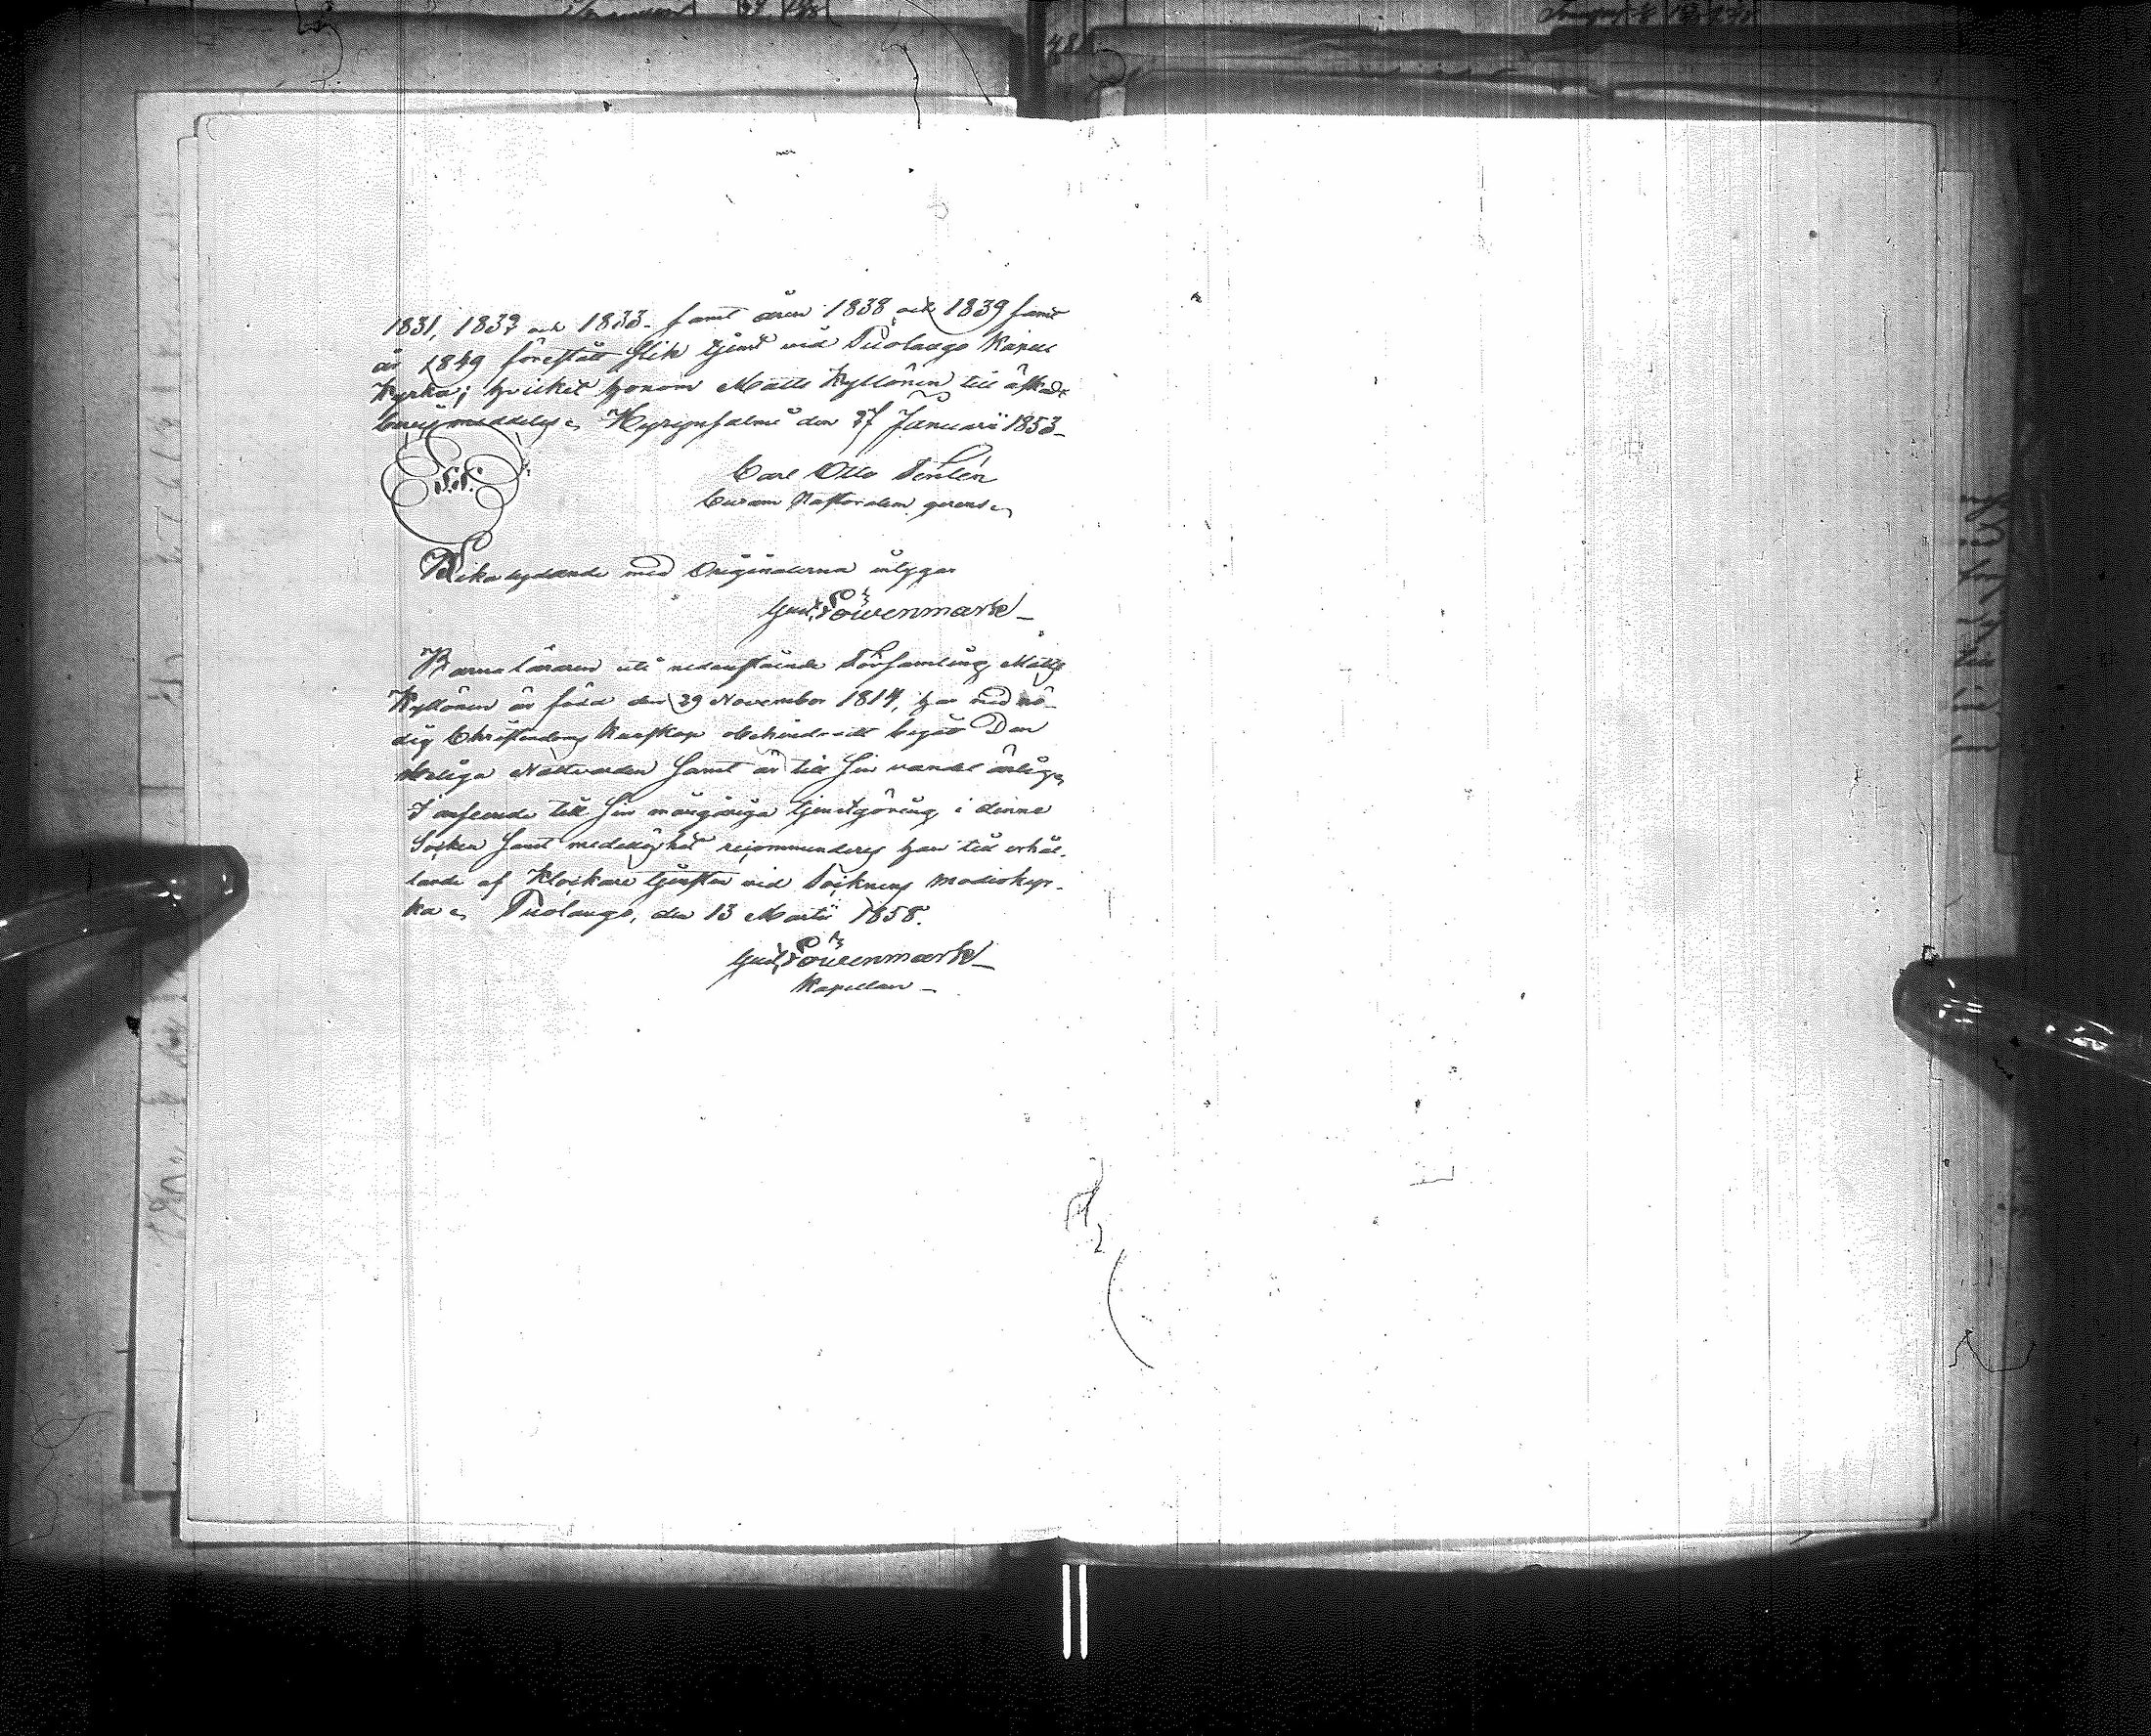 1831, 1832 och 1833 samt åren 1838 och 1839 samt
år 1849 förestått slik tjenst vid Puolango Kapell
Kyrka; hvilket honom Matts Kyllönen till äskadt
bevis meddelas. Hyrynsalmi den 27 Januari 1853.
L.S.
Carl Otto
Curam Pastoralem gerens.
Lika lydande med Originalerna intygar
Gust. Löwenmark
Barnaläraren uti nedanstående Församling Matts
Kyllönen är född den 29 November 1814, har med nö-
dig Christendoms Kunskap obehindradt begått Den
Heliga Nattvarden samt är till sin vandel ärlig.
I anseende till sin mångåriga tjenstgöring i denne
Socken samt recommenderas han till erhål-
lande af Klockare tjensten vid Socknens moderkyr-
ka. Puolango, den 13 Martii 1858.
Gust. Löwenmark
Kapellan